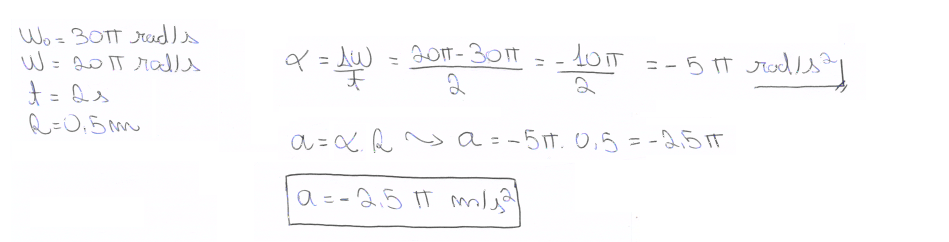 W₀ = 30π rad/s
W = 20π rad/s
t = 2s
R = 0,5m
α = ΔW/t = 20π - 30π/2 = -10π/2 = -5π rad/s²
a = α.R ⤳ a = -5π. 0,5 = -2,5π
a = -2,5 π m/s²